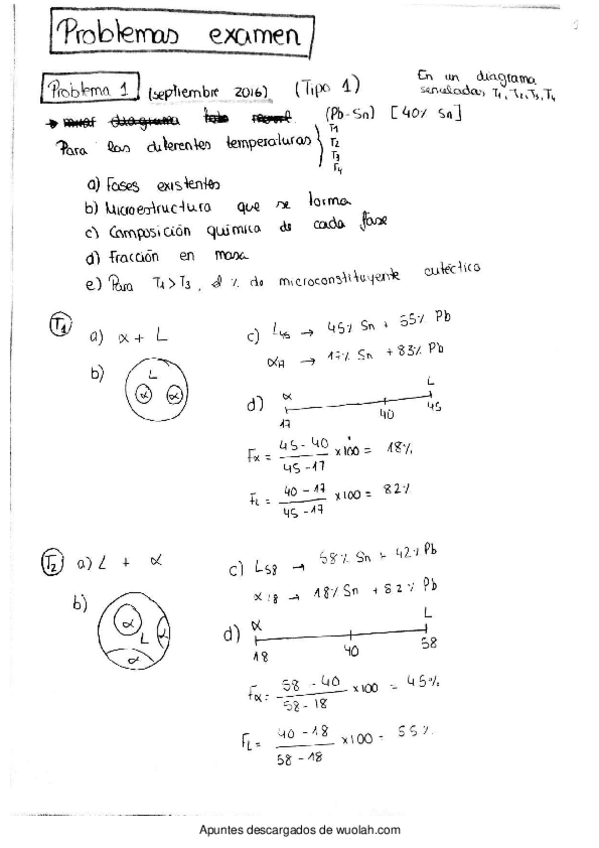 Problemas examen
Problema 1 (septiembre 2016) (Tipo 1) En un diagrama
señaladas, T1, T2, T3, T4
(Pb-Sn) [40% Sn]
Para las diferentes temperaturas T1
T2
T3
T4
a) Fases existentes
b) Microestructura que se forma
c) Composición química de cada fase
d) Fracción en masa
e) Para T4>T3, el % de microconstituyente eutéctico
T1
a) α + L
b)
L
α α
c) L45 → 45% Sn + 55% Pb
α17 → 17% Sn + 83% Pb
d) α L
17 40 45
Fα = 45-40 / 45-17 x100 = 18%
FL = 40-17 / 45-17 x100 = 82%
T2 a) L + α
b)
α L
α
c) L58 → 58% Sn + 42% Pb
α18 → 18% Sn + 82% Pb
d) α L
18 40 58
Fα = 58-40 / 58-18 x100 = 45%
FL = 40-18 / 58-18 x100 = 55%
Apuntes descargados de wuolah.com